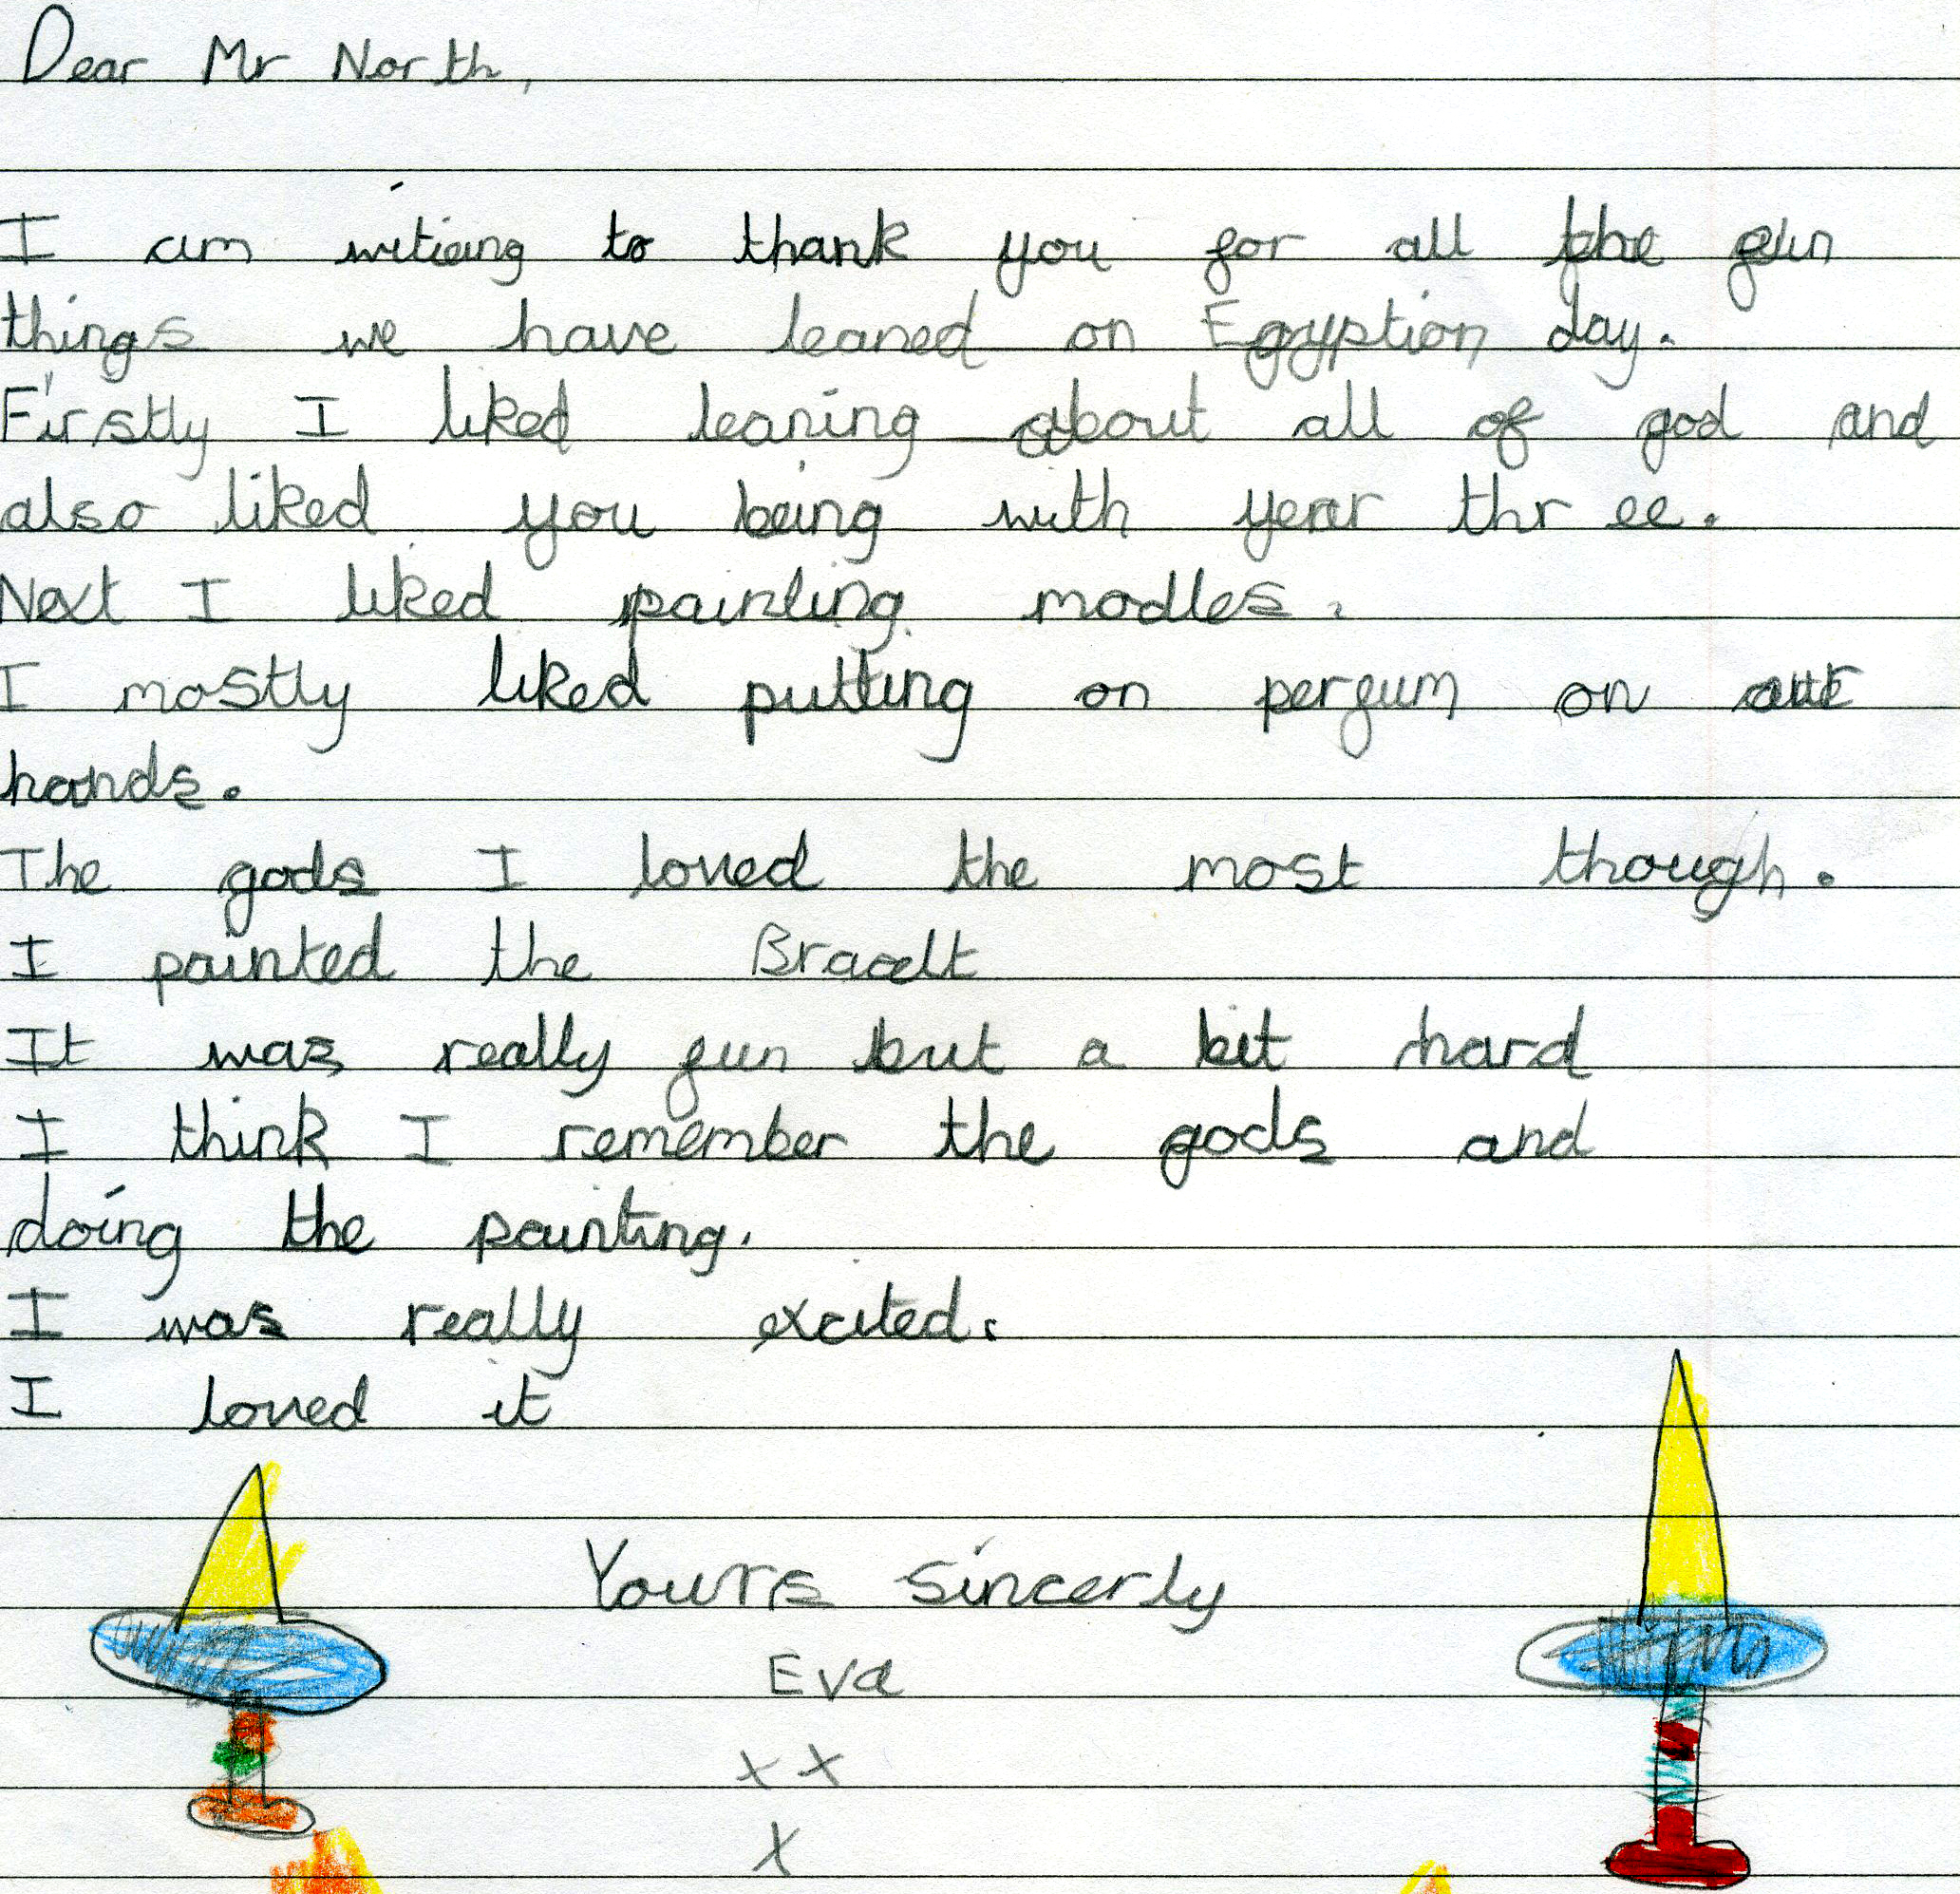 Dear Mr North,
I am writeing to thank you for all the fun
things we have leaned on Egyption day.
Firstly I liked leaning about all of god and
also liked you being with year thr ee.
Next I liked painting modles.
I mostly liked putting on perfum on our
hands.
The gods I loved the most though.
I painted the
It was really fun but a bit hard
I think I remember the gods and
doing the painting.
I was really excited.
I loved it
Yours sincerly
Eva
x x
x